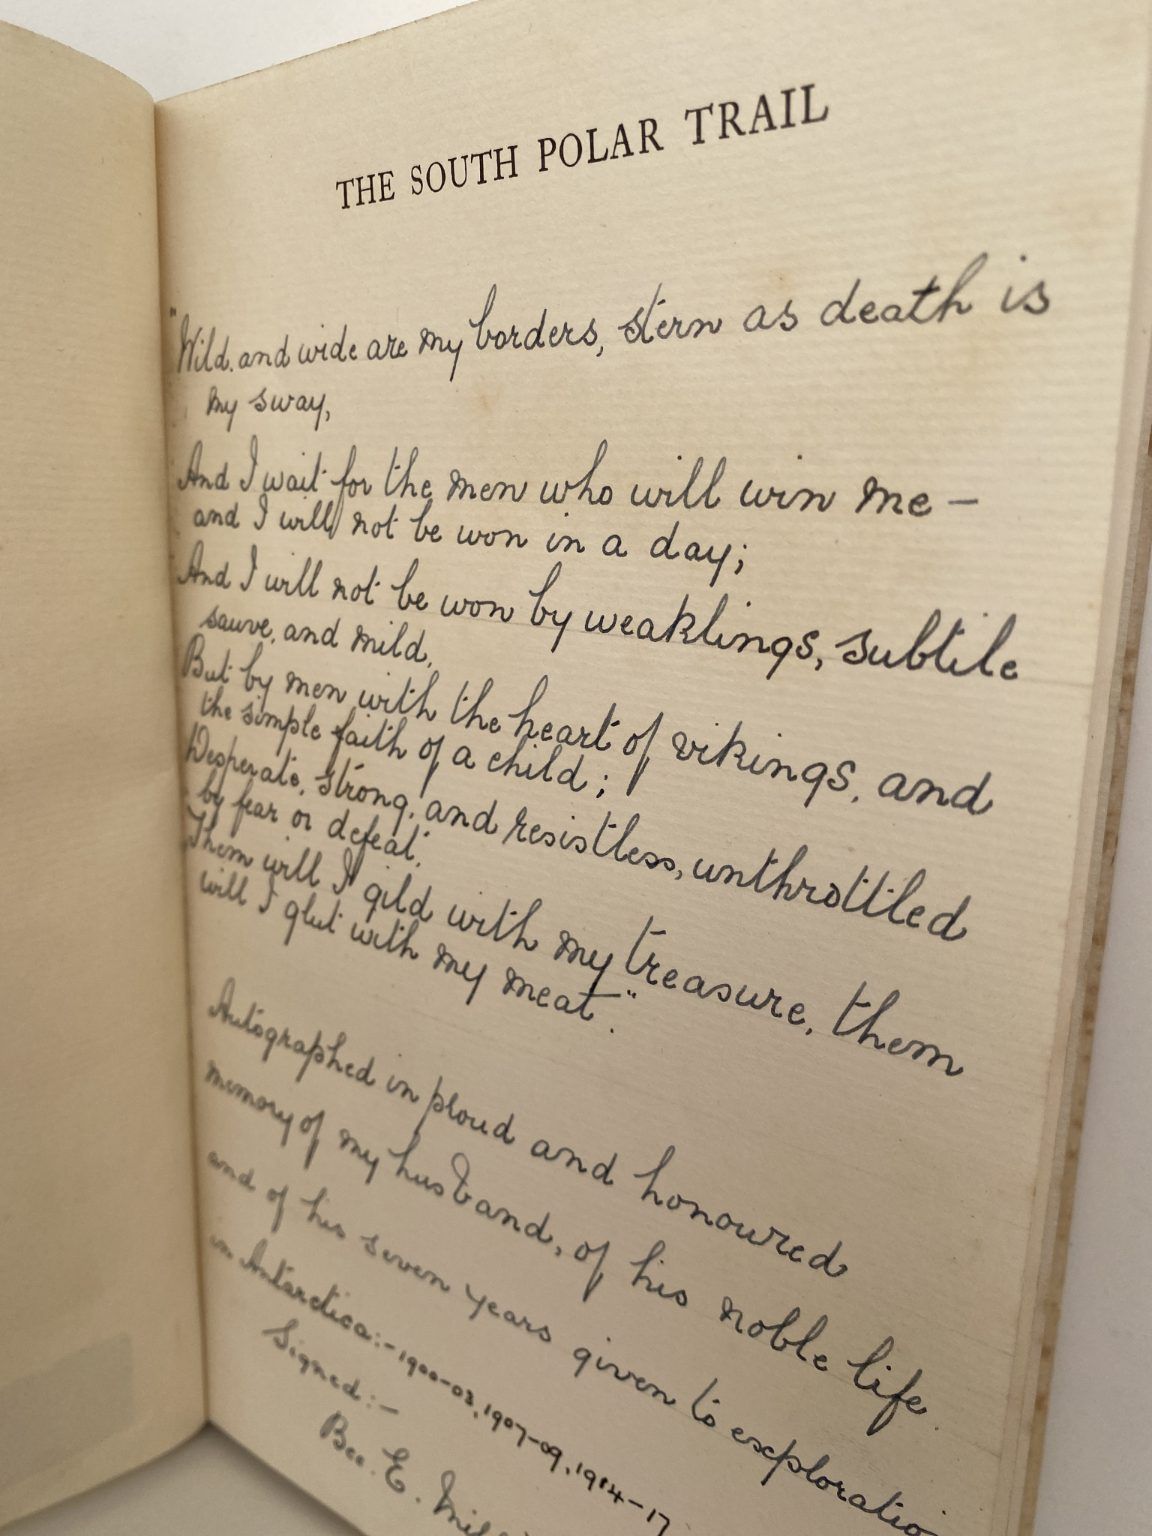 THE SOUTH POLAR TRAIL
"Wild and wide are my borders, stern as death is
my sway,
And I wait for the men who will win me —
and I will not be won in a day;
And I will not be won by weaklings, subtile
sauve, and mild,
But by men with the heart of vikings, and
the simple faith of a child;
Desperate, strong, and resistless, unthrottled
by fear or defeat,
Them will I gild with my treasure, them
will I glut with my meat."
Autographed in ploud and honoured
memory of my husband, of his noble life
and of his seven years given to exploratio
in Antarctica:- 1900-03, 1907-09, 1914-17
Signed:-
Bee. E.